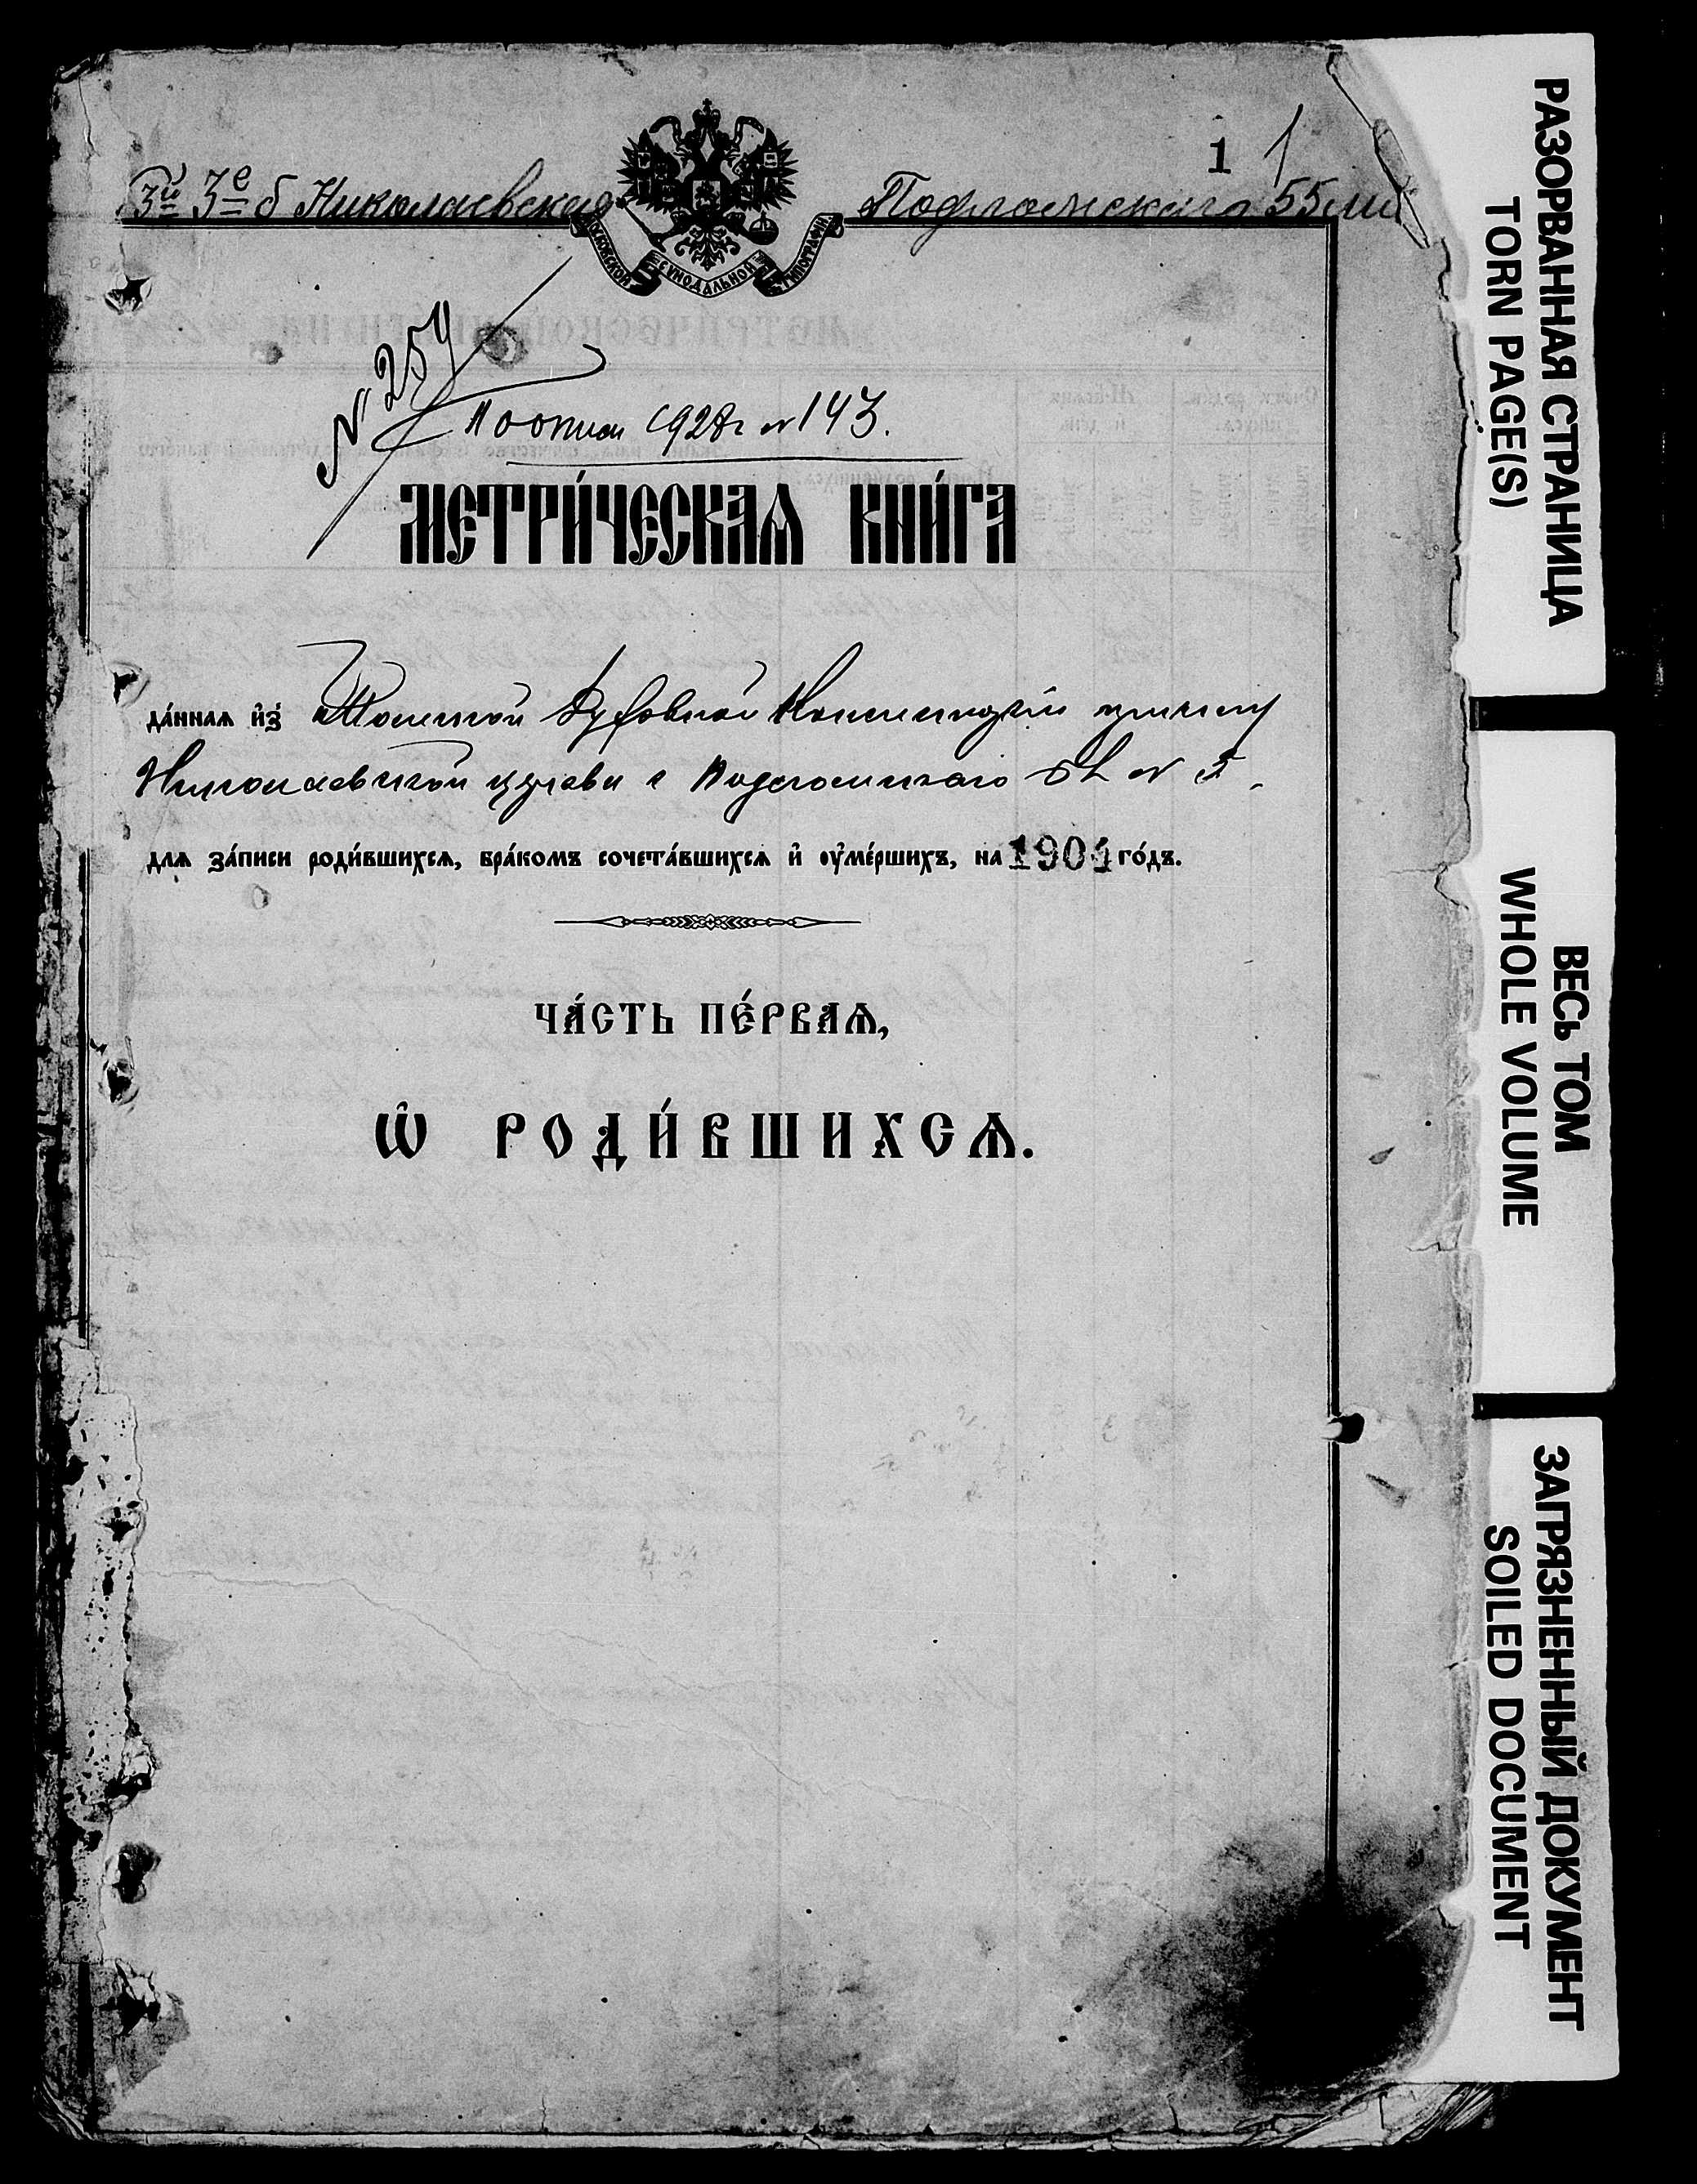 1 1
3й 3е б Николаевская Подломскаго 55
МОСКОВСКОЙ СѴНОДАЛЬНОЙ ТИПОГРАФІИ
№ 259
По описи 1928 г № 143.
МЕТРИ́ЧЕСКАѦ КНИ́ГА
да́ннаѧ и҆з̾ Томской Духовной Консисторіи причту
Николаевской церкви с Подломскаго бл №
длѧ за́писи роди́вшихсѧ, бра́комъ сочета́вшихсѧ и҆ ᲂу҆ме́ршихъ, на 1904 го́дъ.
ЧА́СТЬ ПЕ́РВАѦ,
Ѽ РОДИ́ВШИХСѦ.
РАЗОРВАННАЯ СТРАНИЦА
TORN PAGE(S)
ВЕСЬ ТОМ
WHOLE VOLUME
ЗАГРЯЗНЕННЫЙ ДОКУМЕНТ
SOILED DOCUMENT